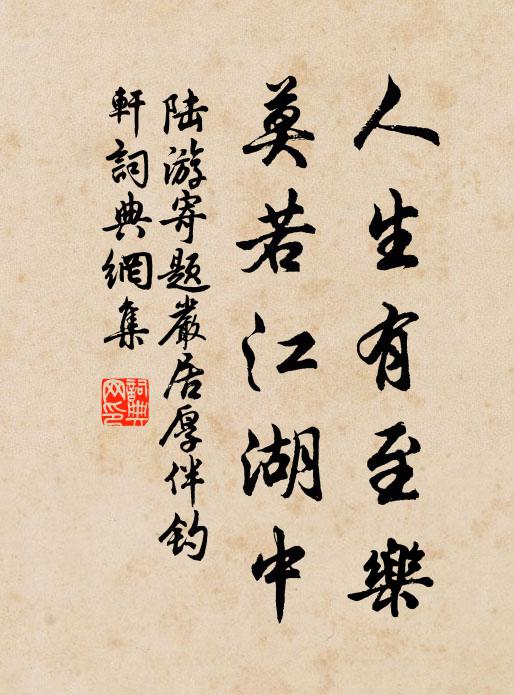 人生有至樂
莫若江湖中
陸游寄題嚴居厚伴釣
軒詞典網集
詞典
网印